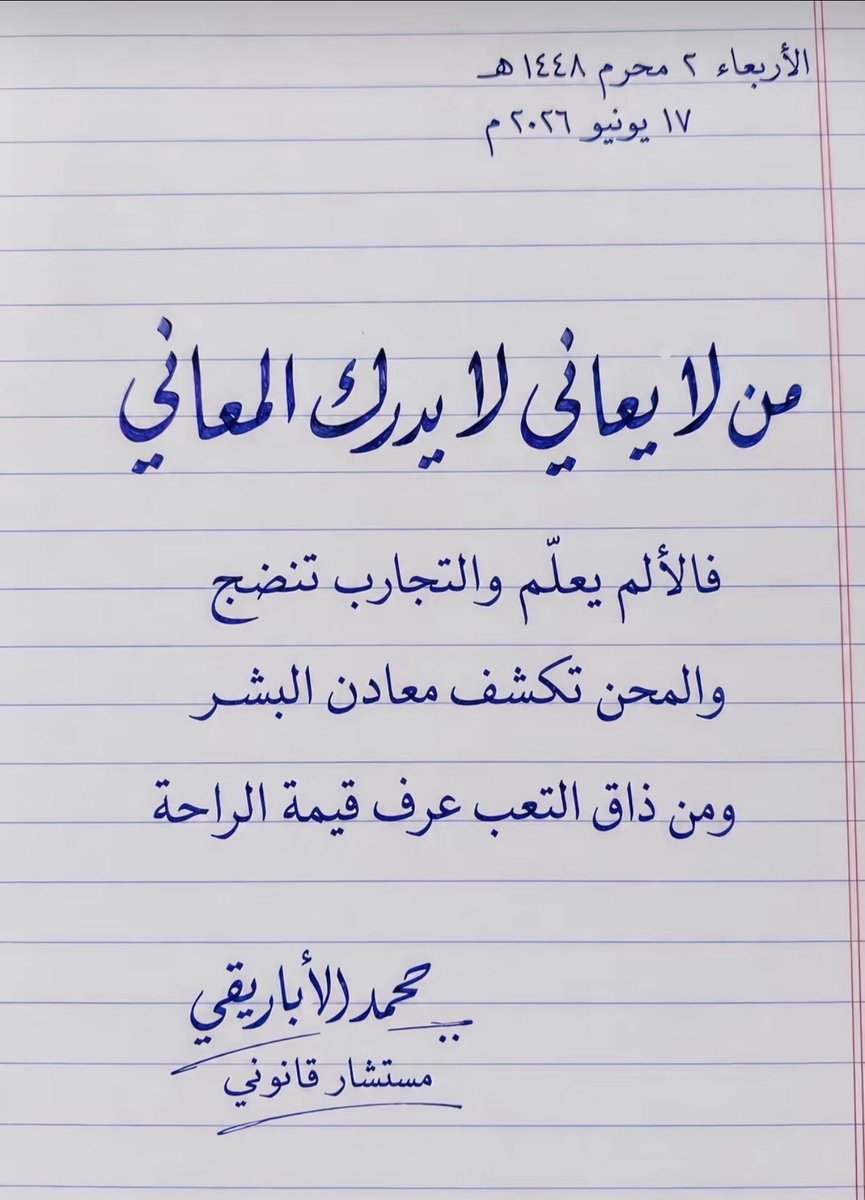 الأربعاء ٢ محرم ١٤٤٨هـ
١٧ يونيو ٢٠٢٦م
من لا يعاني لا يدرك المعاني
فالألم يعلّم والتجارب تنضج
والمحن تكشف معادن البشر
ومن ذاق التعب عرف قيمة الراحة
محمد الأباريقي
مستشار قانوني